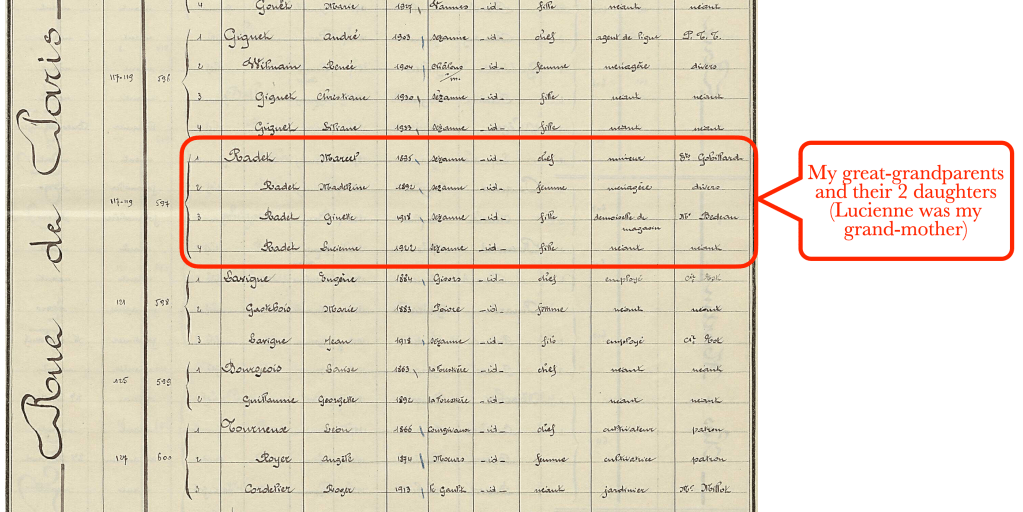 Rue de Paris
4 Gouet Marie 1927 Vannes - id - fille néant néant
117-119 596
1 Giguet André 1903 Sézanne - id - chef agent de ligne P. T. T.
2 Renée 1904 Châlons /m. - id - femme ménagère divers
3 Giguet Christiane 1930 Sézanne - id - fille néant néant
4 Giguet Liliane 1933 Sézanne - id - fille néant néant
117-119 597
1 Radet Marcel 1895 Sézanne - id - chef mineur Gobillard
2 Radet Madeleine 1892 Sézanne - id - femme ménagère divers
3 Radet Ginette 1918 Sézanne - id - fille demoiselle de magasin Bedeau
4 Radet Lucienne 1922 Sézanne - id - fille néant néant
My great-grandparents
and their 2 daughters
(Lucienne was my
grand-mother)
121 598
1 Lavigne Eugène 1884 Gisors - id - chef employé
2 Marie 1883 - id - femme néant néant
3 Lavigne Jean 1918 Sézanne - id - fils employé
125 599
1 Bourgeois Louise 1863 la Forestière - id - chef néant néant
2 Guillaume Georgette 1892 la Forestière - id - néant néant
127 600
1 Tourneux Léon 1866 Courgivaux - id - chef cultivateur patron
2 Royer Angèle 1874 Moeurs - id - femme cultivatrice patron
3 Cordelier Roger 1913 le Gault - id - néant jardinier Mr Millot